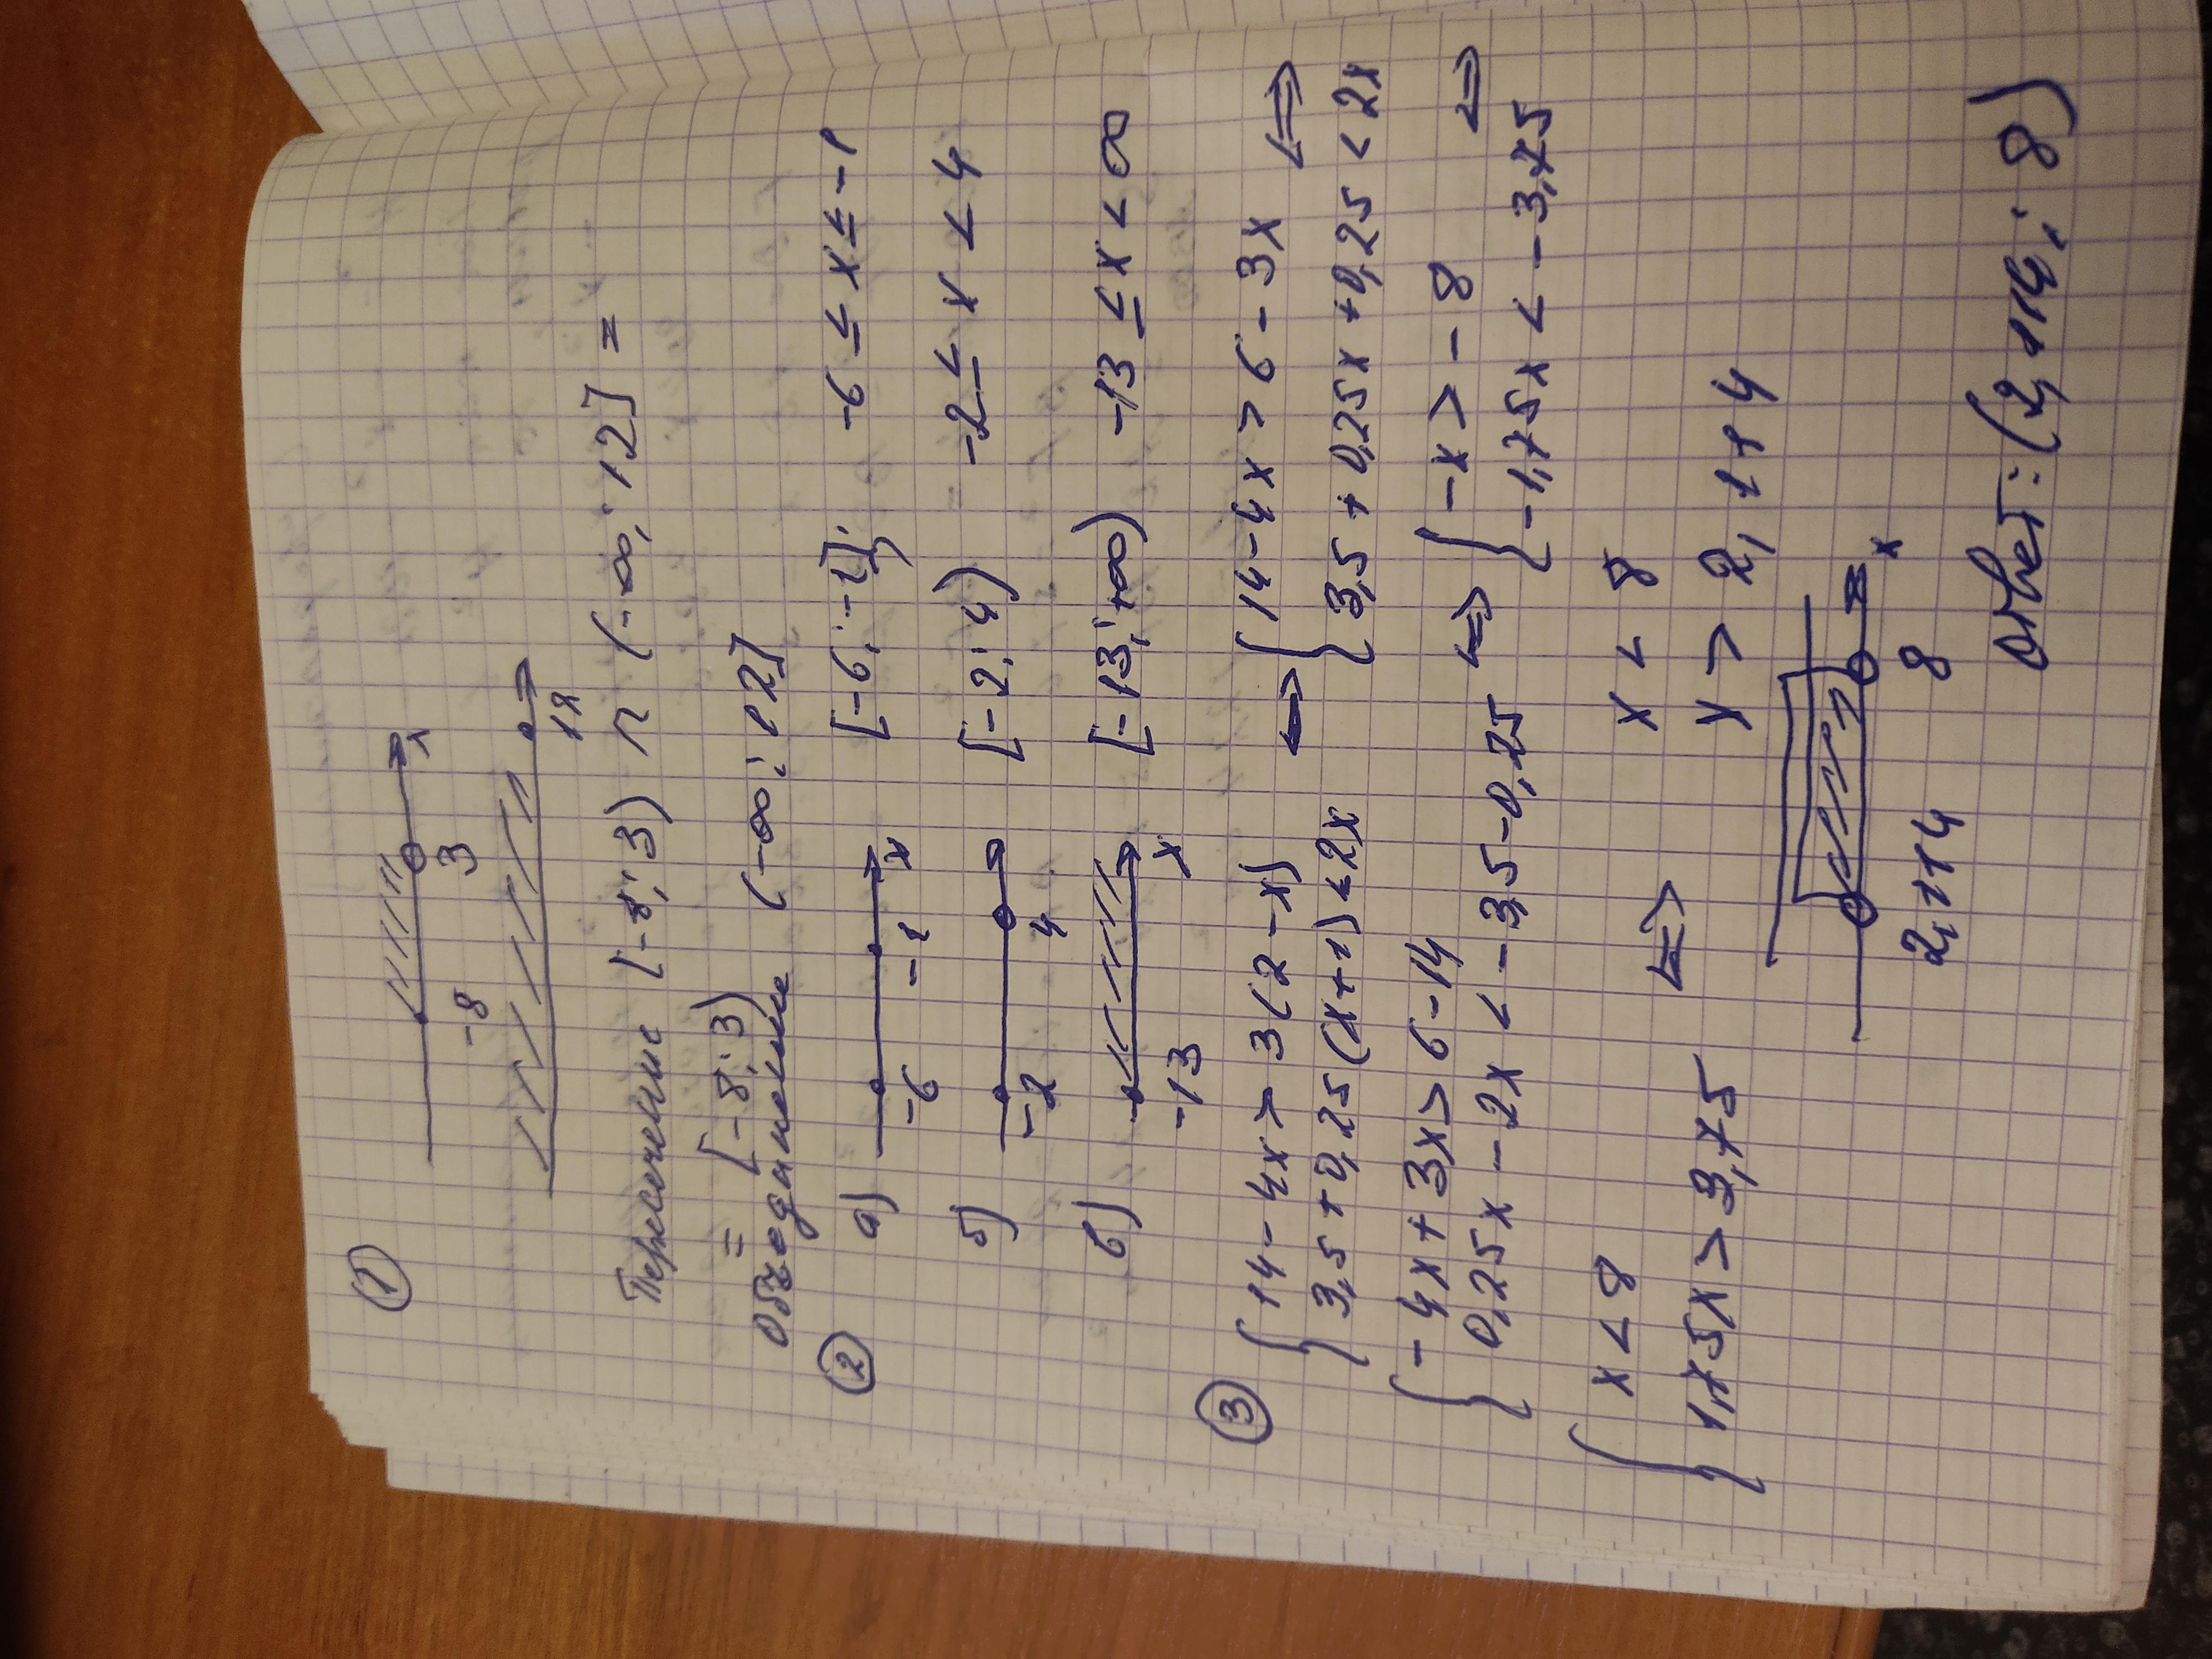 1
-8 3
12
Пересечение [-8; 3) ∩ (-∞; 12] =
= [-8; 3)
Объединение (-∞; 12]
2 а) -6 -1 x [-6; -1]; -6 ≤ x ≤ -1
б) -2 4 [-2; 4) -2 ≤ x < 4
в) -13 x [-13; +∞) -13 ≤ x < ∞
3 { 14 - 4x > 3(2 - x) <=> { 14 - 4x > 6 - 3x <=>
3,5 + 0,25(x+1) < 2x 3,5 + 0,25x + 0,25 < 2x
{ -4x + 3x > 6 - 14 <=> { -x > -8 <=>
0,25x - 2x < -3,5 - 0,25 -1,75x < -3,75
{ x < 8 <=> x < 8
1,75x > 3,75 x > 2,14
2,14 8 x
Ответ: (2,14; 8)